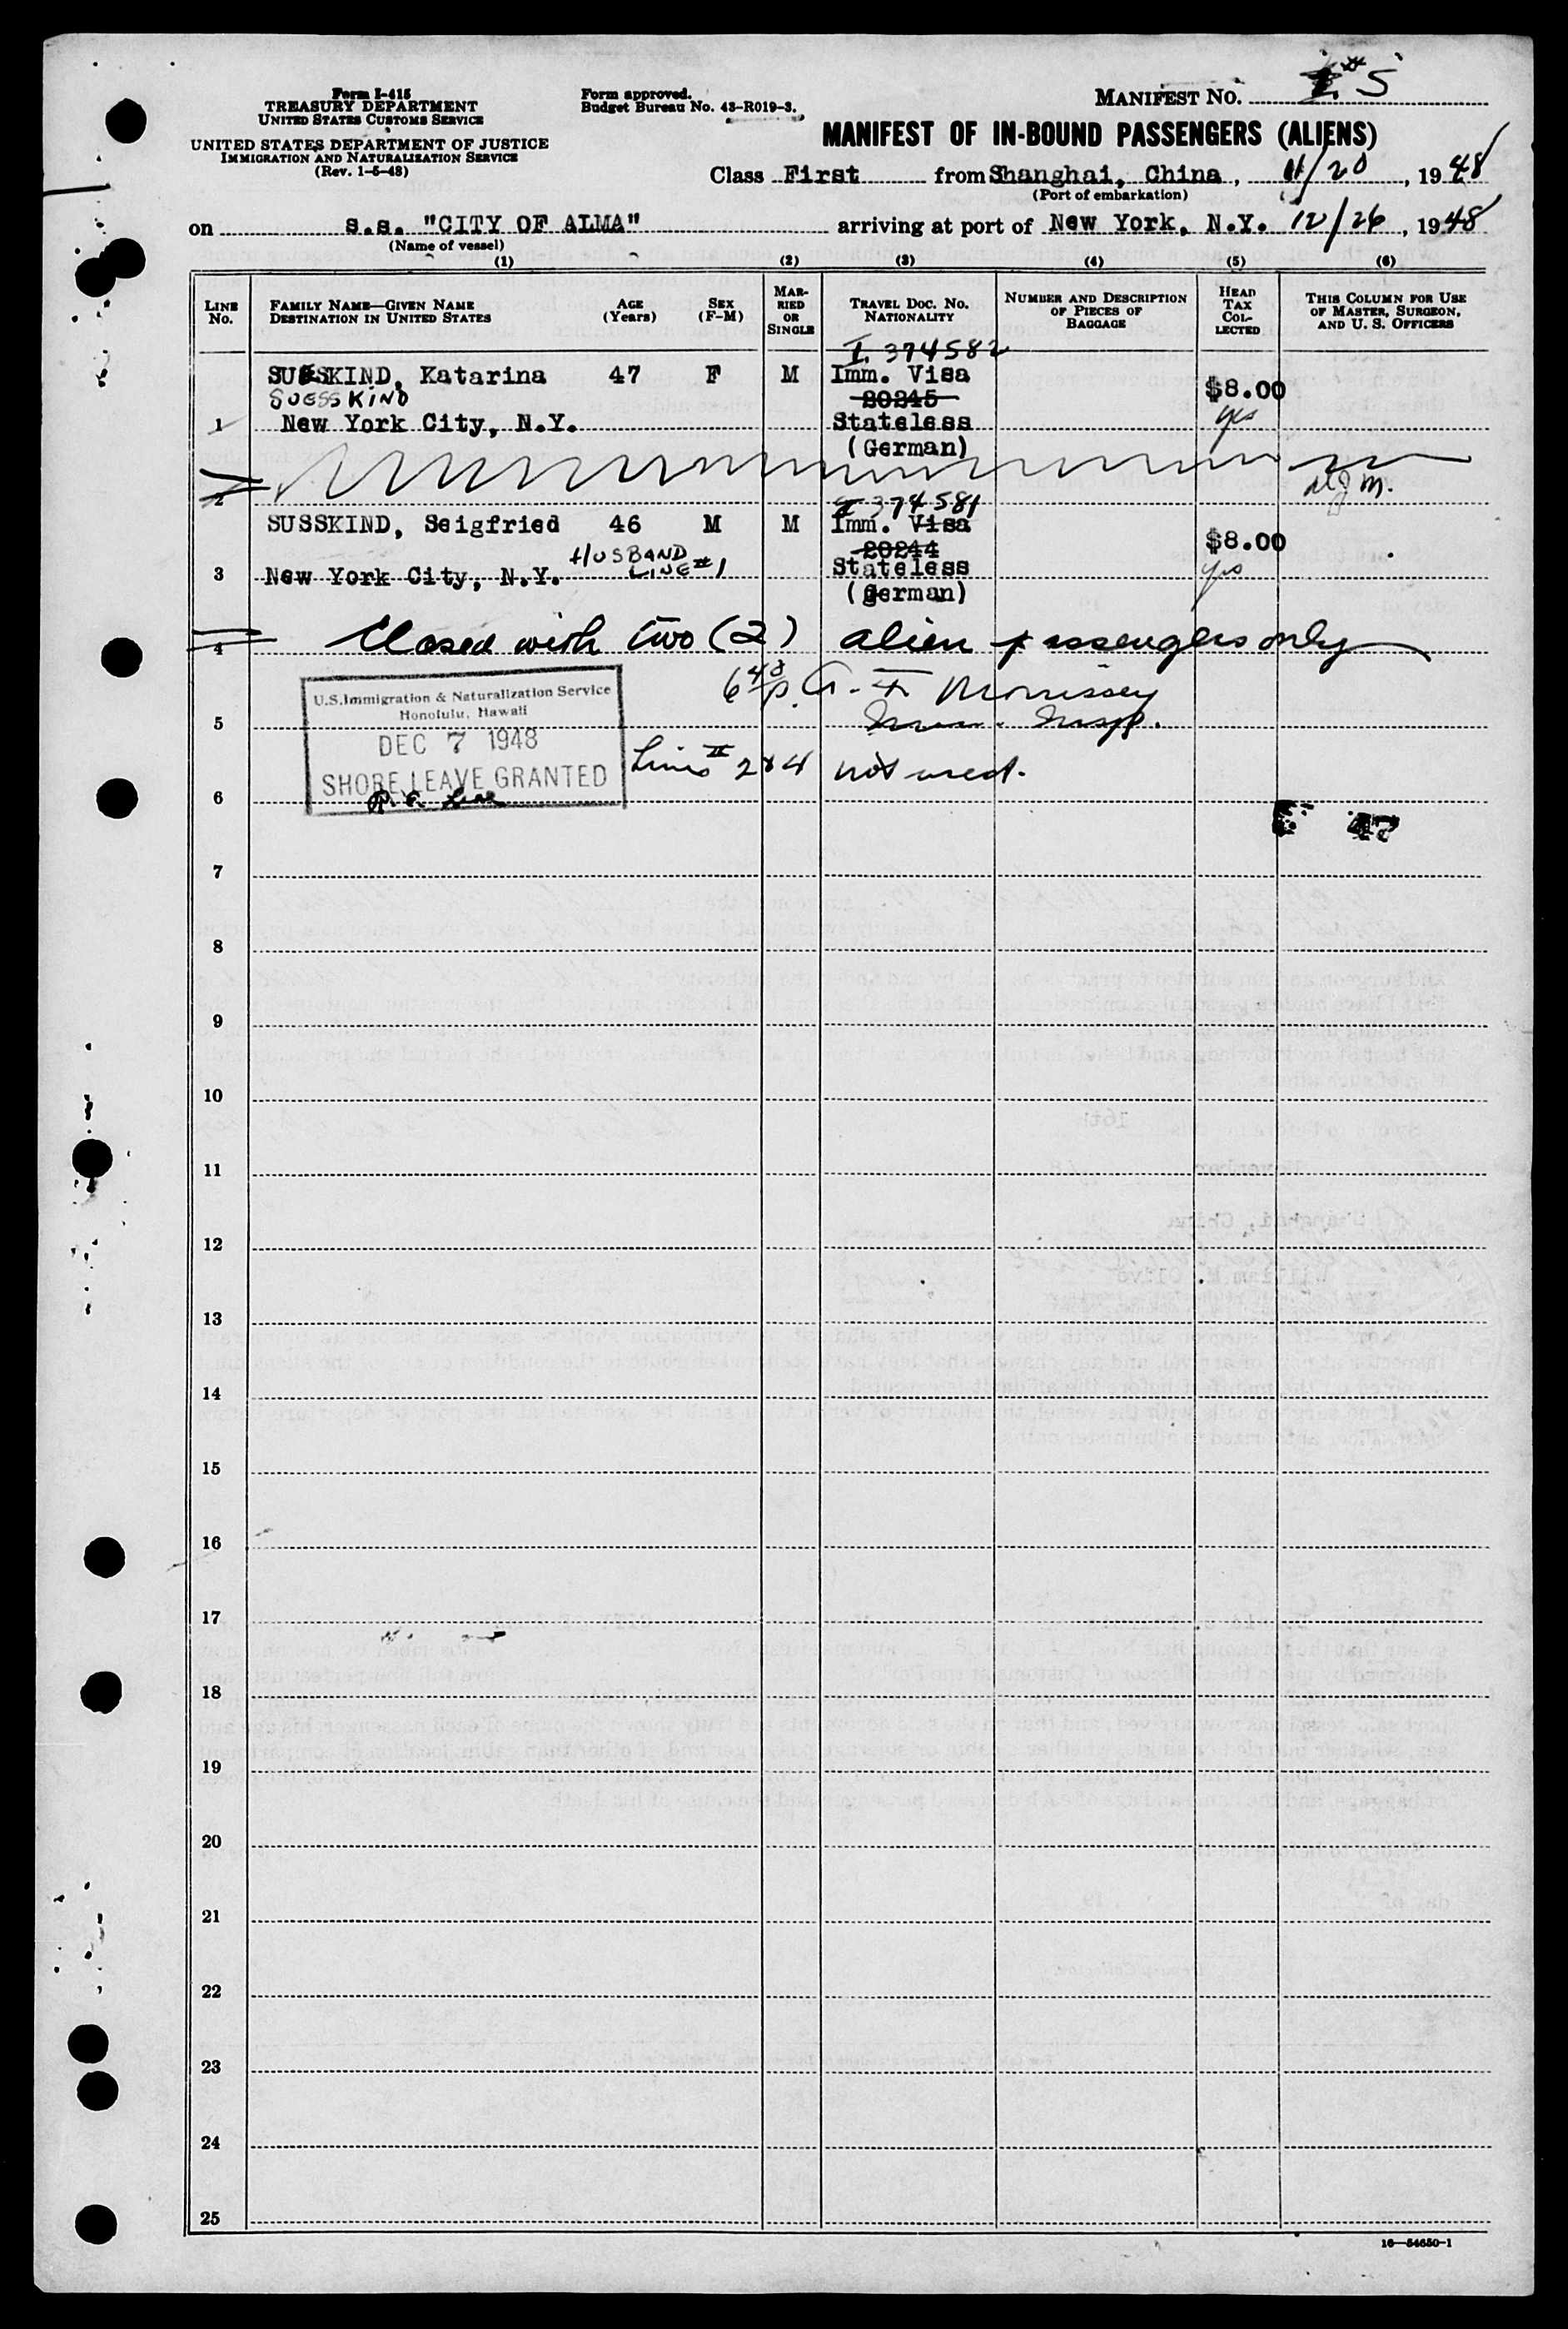 Form I-415
TREASURY DEPARTMENT
UNITED STATES CUSTOMS SERVICE
UNITED STATES DEPARTMENT OF JUSTICE
IMMIGRATION AND NATURALIZATION SERVICE
(Rev. 1-5-48)
Form approved.
Budget Bureau No. 43-R019-3.
MANIFEST NO. #5
MANIFEST OF IN-BOUND PASSENGERS (ALIENS)
Class First from Shanghai, China, 11/20, 1948
(Port of embarkation)
on s.s. "CITY OF ALMA" arriving at port of New York, N.Y. 12/26, 1948
(Name of vessel)
(1) (2) (3) (4) (5) (6)
LINE No.
FAMILY NAME—GIVEN NAME
DESTINATION IN UNITED STATES
AGE (Years)
SEX (F-M)
MARRIED OR SINGLE
TRAVEL DOC. NO.
NATIONALITY
NUMBER AND DESCRIPTION OF PIECES OF BAGGAGE
HEAD TAX COLLECTED
THIS COLUMN FOR USE OF MASTER, SURGEON, AND U. S. OFFICERS
I. 374582
SUSSKIND, Katarina 47 F M Imm. Visa $8.00
SUESSKIND 20245 yes
1 New York City, N.Y. Stateless
(German)
2
I 374581
SUSSKIND, Seigfried 46 M M Imm. Visa $8.00
HUSBAND LINE #1 20244
3 New York City, N.Y. Stateless yes
(German)
4 Closed with two (2) alien passengers only
U.S. Immigration & Naturalization Service
Honolulu, Hawaii
DEC 7 1948
SHORE LEAVE GRANTED
Morrissey
5 Imm. Insp.
Lines # 2 & 4 not used.
6
7
8
9
10
11
12
13
14
15
16
17
18
19
20
21
22
23
24
25
16—54650-1